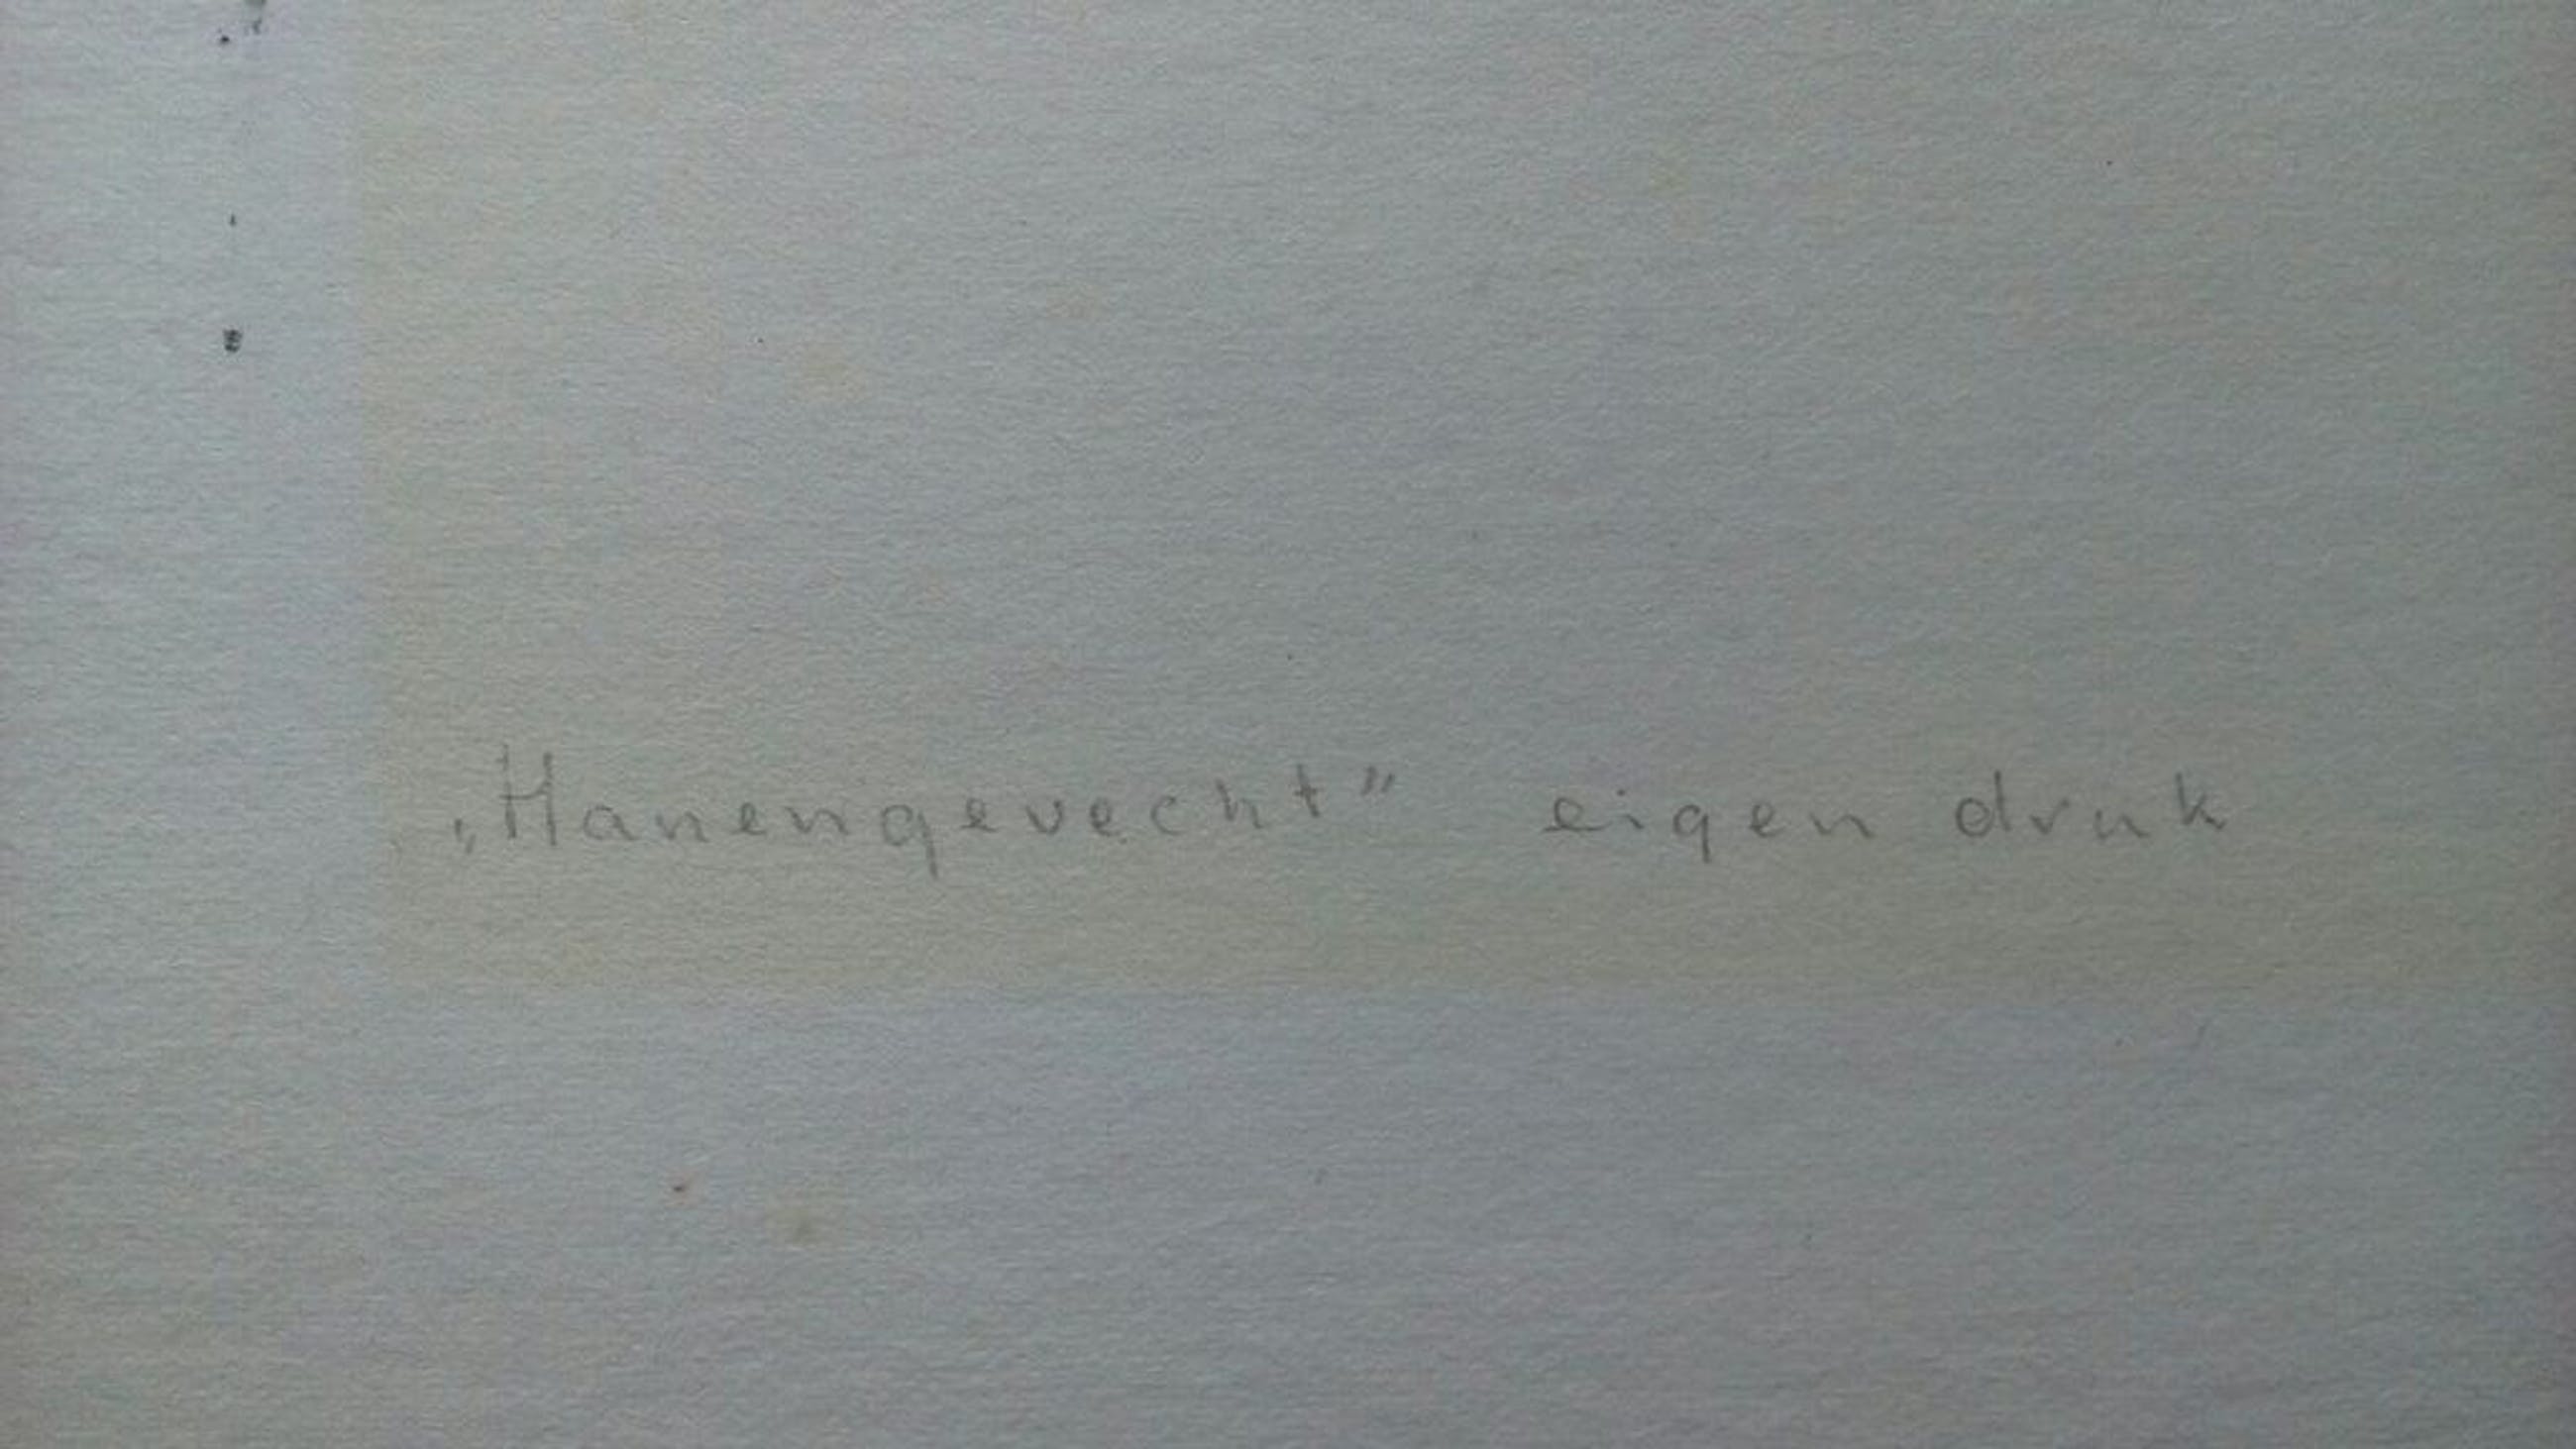 „Hanengevecht” eigen druk